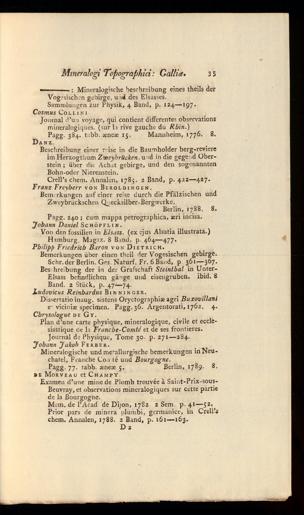 Mineralogi Topographici: Galliæ. 35
———: Mineralogische beschreibung eines theils der
Vogesischen gebirge, und des Elsasses.
Sammlungen zur Physik, 4 Band, p. 124—197.
Cosmus COLLINI
Journal d'un voyage, qui contient differentes observations
mineralogiques. (sur la rive gauche du Rhin.)
Pagg. 384. tabb. æneæ 15. Manaheim, 1776. 8.
DANZ.
Beschreibung einer reise in die Baumholder berg-reviere
im Herzogthum Zweybrücken, und in die gegend Ober-
stein; über die Achat gebirge, und den sogenannten
Bohn-oder Nierenstein.
Crell's chem. Annalen, 1785. 2 Band, p. 422—427.
Franz Freyherr von BEROLDINGEN.
Bemerkungen auf einer reise durch die Pfälzischen und
Zweybrückschen Quecksilber-Bergwerke.
Berlin, 1788. 8.
Pagg. 240; cum mappa petrographica, æri incisa.
Johann Daniel SCHÖPFLIN.
Von den fossilien in Elsass. (ex ejus Alsatia illustrata.)
Hamburg. Magaz. 8 Band, p. 464—477.
Philipp Friedrich Baron von DIETRICH.
Bemerkungen über einen theil der Vogesischen gebirge.
Schr. der Berlin. Ges. Naturf. Fr. 6 Band, p. 361—367.
Beschreibung der in der Grafschaft Steinthal in Unter-
Elsass befindlichen gänge und eisengruben. ibid. 8
Band. 2 Stück, p. 47—74.
Ludovicus Reinhardus BINNINGER.
Dissertatio inaug. sistens Oryctographiæ agri Buxovillani
et viciniæ specimen. Pagg. 36. Argentorati, 1762. 4.
Chrysologue DE GY.
Plan d'une carte physique, mineralogique, civile et eccle-
siastique de la Franche-Comté et de ses frontieres.
Journal de Physique, Tome 30. p. 271—284.
Johann Jakob FERBER.
Mineralogische und metallurgische bemerkungen in Neu-
chatel, Franche Comté und Bourgogne.
Pagg. 77. tabb. æneæ 5. Berlin, 1789. 8.
DE MORVEAU et CHAMPY.
Examen d'une mine de Plomb trouvée à Saint-Prix-sous-
Beuvray, et observations mineralogiques sur cette partie
de la Bourgogne.
Mem. de l'Acad. de Dijon, 1782. 2 Sem. p. 41—52.
Prior pars de minera plumbi, germanice, in Crell's
chem. Annalen, 1788. 2 Band, p. 161—163.
D 2